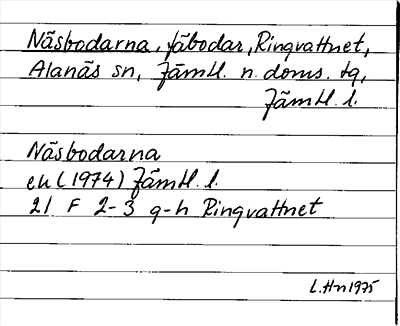 Näsbodarna, fäbodar, Ringvattnet,
Alanäs sn, Jämtl. n. doms. tg,
Jämtl. l.
Näsbodarna
ek (1974) Jämtl. l.
21 F 2-3 g-h Ringvattnet
L.Hn 1975